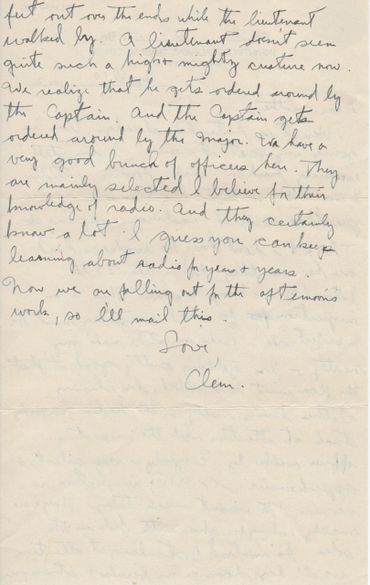 feet out over the ends while the lieutenant
walked by. A lieutenant doesn't seem
quite such a high + mighty creature now.
We realize that he gets ordered around by
the Captain. And the Captain gets
ordered around by the Major. We have a
very good bunch of officers here. They
are mainly selected I believe for their
knowledge of radio. And they certainly
know a lot. I guess you can keep
learning about radio for years + years.
Now we are falling out for the afternoon's
work, so I'll mail this.
Love,
Clem.